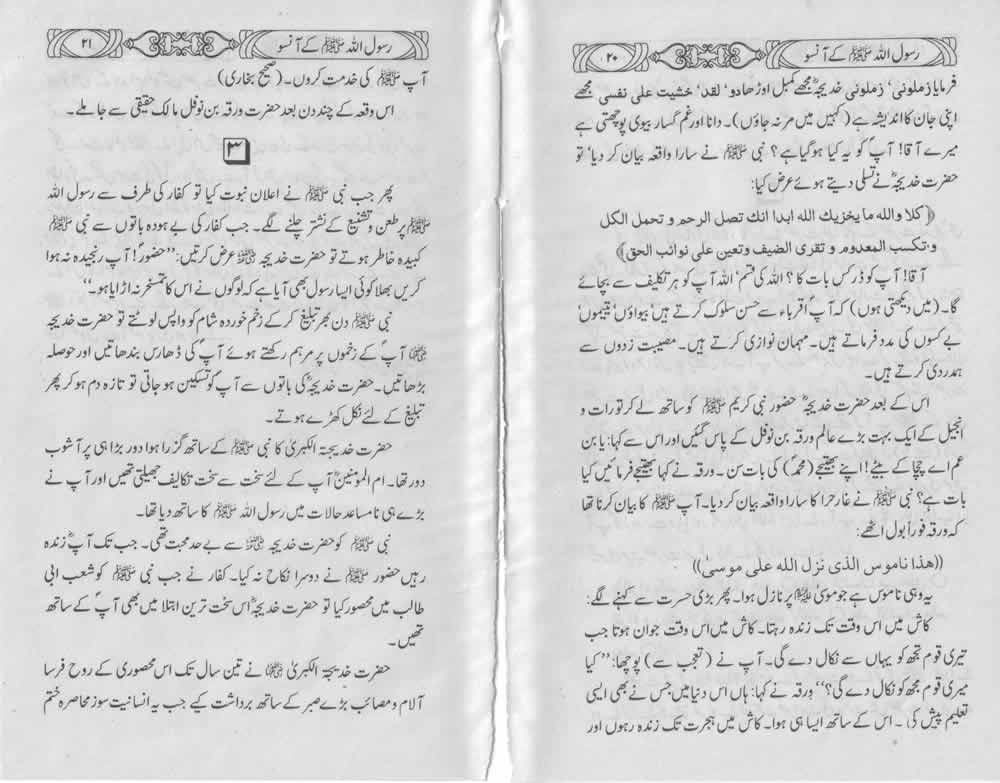 رسول اللہ ﷺ کے آنسو
۲۰
فرمایا زملونی‘ زملونی خدیجہؓ مجھے کمبل اوڑھا دو‘ لقد‘ خشیت علی نفسی مجھے
اپنی جان کا اندیشہ ہے (کہیں میں مر نہ جاؤں)۔ دانا اور غم گسار بیوی پوچھتی ہے
میرے آقا! آپؐ کو یہ کیا ہو گیا ہے؟ نبی ﷺ نے سارا واقعہ بیان کر دیا‘ تو
حضرت خدیجہؓ نے تسلی دیتے ہوئے عرض کیا:
﴿كلا والله ما يخزيك الله ابدا انك تصل الرحم و تحمل الكل
و تكسب المعدوم و تقرى الضيف وتعين على نوائب الحق﴾
آقا! آپ کو ڈر کس بات کا؟ اللہ کی قسم‘ اللہ آپ کو ہر تکلیف سے بچائے
گا۔ (میں دیکھتی ہوں) کہ آپؐ اقرباء سے حسن سلوک کرتے ہیں‘ بیواؤں‘ یتیموں‘
بے کسوں کی مدد فرماتے ہیں۔ مہمان نوازی کرتے ہیں۔ مصیبت زدوں سے
ہمدردی کرتے ہیں۔
اس کے بعد حضرت خدیجہؓ حضور نبی کریم ﷺ کو ساتھ لے کر تورات و
انجیل کے ایک بہت بڑے عالم ورقہ بن نوفل کے پاس گئیں اور اس سے کہا: یا بن
عم اے چچا کے بیٹے! اپنے بھتیجے (محمدؐ) کی بات سن۔ ورقہ نے کہا بھتیجے فرمائیں کیا
بات ہے؟ نبی ﷺ نے غار حرا کا سارا واقعہ بیان کر دیا۔ آپ ﷺ کا بیان کرنا تھا
کہ ورقہ فوراً بول اٹھے:
((هذا ناموس الذى نزل الله على موسى))
یہ وہی ناموس ہے جو موسیٰ علیہ السلام پر نازل ہوا۔ پھر بڑی حسرت سے کہنے لگے:
کاش میں اس وقت تک زندہ رہتا۔ کاش میں اس وقت جوان ہوتا جب
تیری قوم تجھ کو یہاں سے نکال دے گی۔ آپ نے (تعجب سے) پوچھا: ”کیا
میری قوم مجھ کو نکال دے گی؟“ ورقہ نے کہا: ہاں اس دنیا میں جس نے بھی ایسی
تعلیم پیش کی۔ اس کے ساتھ ایسا ہی ہوا۔ کاش میں ہجرت تک زندہ رہوں اور
رسول اللہ ﷺ کے آنسو
۲۱
آپ ﷺ کی خدمت کروں۔ (صحیح بخاری)
اس وقعہ کے چند دن بعد حضرت ورقہ بن نوفل مالک حقیقی سے جا ملے۔
۳
پھر جب نبی ﷺ نے اعلان نبوت کیا تو کفار کی طرف سے رسول اللہ
ﷺ پر طعن و تشنیع کے نشتر چلنے لگے۔ جب کفار کی بے ہودہ باتوں سے نبی ﷺ
کبیدہ خاطر ہوتے تو حضرت خدیجہ رضی اللہ عنہا عرض کرتیں: ”حضورؐ! آپ رنجیدہ نہ ہوا
کریں بھلا کوئی ایسا رسول بھی آیا ہے کہ لوگوں نے اس کا تمسخر نہ اڑایا ہو۔“
نبی ﷺ دن بھر تبلیغ کر کے زخم خوردہ شام کو واپس لوٹتے تو حضرت خدیجہ
رضی اللہ عنہا آپؐ کے زخموں پر مرہم رکھتے ہوئے آپؐ کی ڈھارس بندھاتیں اور حوصلہ
بڑھاتیں۔ حضرت خدیجہؓ کی باتوں سے آپؐ کو تسکین ہو جاتی تو تازہ دم ہو کر پھر
تبلیغ کے لئے نکل کھڑے ہوتے۔
حضرت خدیجۃ الکبریٰ کا نبی ﷺ کے ساتھ گزرا ہوا دور بڑا ہی پر آشوب
دور تھا۔ ام المومنینؓ آپ کے لئے سخت سے سخت تکالیف جھیلتی تھیں اور آپ نے
بڑے ہی نامساعد حالات میں رسول اللہ ﷺ کا ساتھ دیا تھا۔
نبی ﷺ کو حضرت خدیجہ رضی اللہ عنہا سے بے حد محبت تھی۔ جب تک آپؓ زندہ
رہیں حضور ﷺ نے دوسرا نکاح نہ کیا۔ کفار نے جب نبی ﷺ کو شعب ابی
طالب میں محصور کیا تو حضرت خدیجہؓ اس سخت ترین ابتلا میں بھی آپؐ کے ساتھ
تھیں۔
حضرت خدیجۃ الکبریٰ رضی اللہ عنہا نے تین سال تک اس محصوری کے روح فرسا
آلام و مصائب بڑے صبر کے ساتھ برداشت کیے جب یہ انسانیت سوز محاصرہ ختم